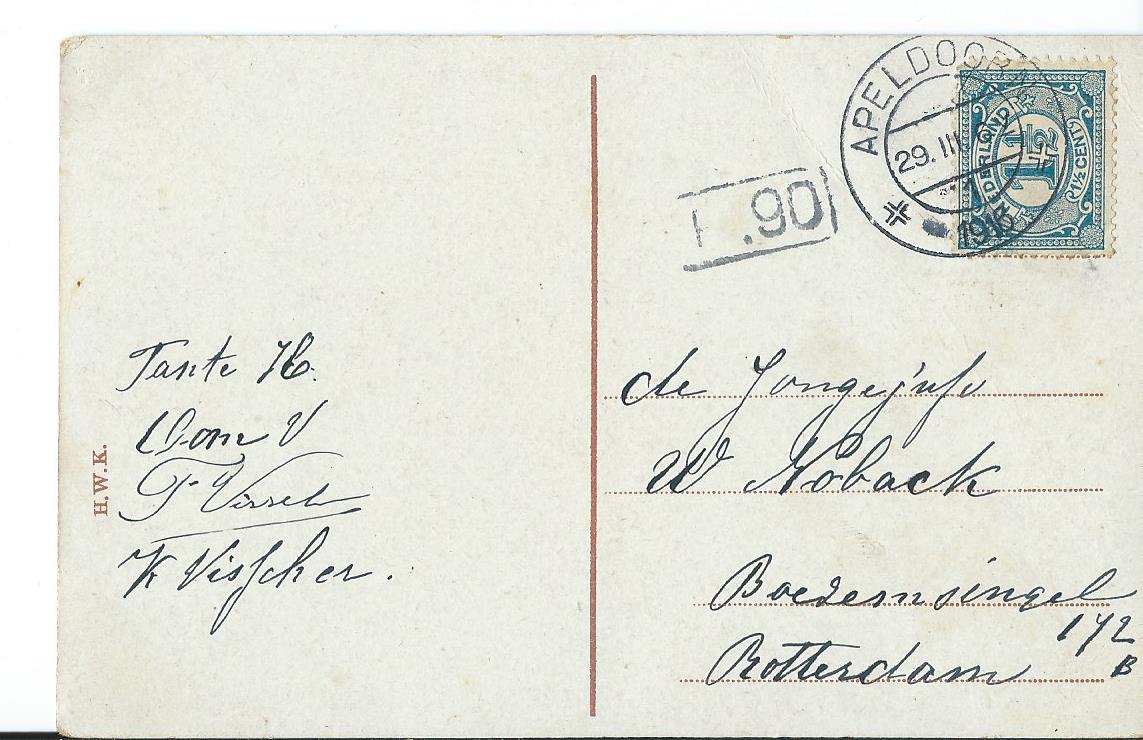 APELDOORN
29. III
1916
NEDERLAND
1½
1½ CENT
.90
Tante H.
Oom V
F Visscher
K Visscher.
H.W.K.
de Jongejufr
W Noback
Boezemsingel
172
B
Rotterdam